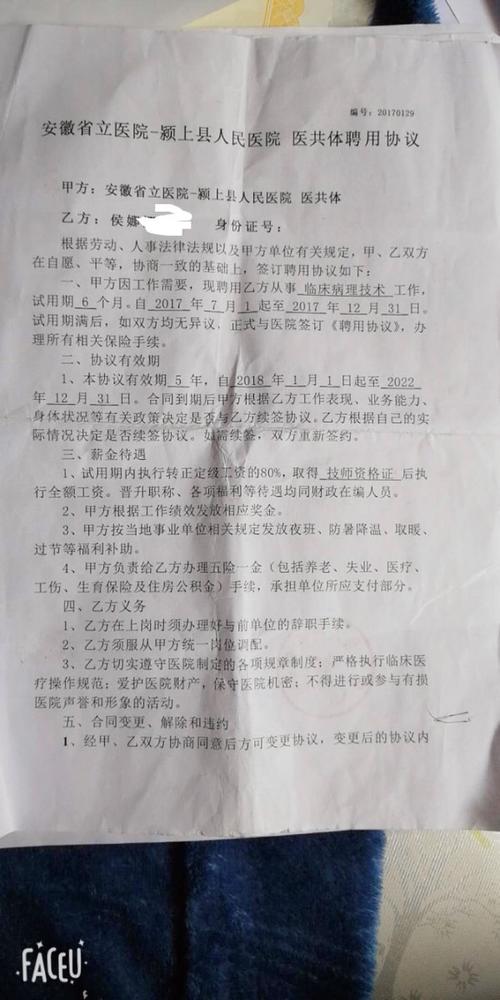 编号：20170129
安徽省立医院-颍上县人民医院 医共体聘用协议
甲方：安徽省立医院-颍上县人民医院 医共体
乙方：侯娜 身份证号：
根据劳动、人事法律法规以及甲方单位有关规定，甲、乙双方
在自愿、平等，协商一致的基础上，签订聘用协议如下：
一、甲方因工作需要，现聘用乙方从事 临床病理技术 工作，
试用期 6 个月。自 2017 年 7 月 1 起至 2017 年 12 月 31 日。
试用期满后，如双方均无异议，正式与医院签订《聘用协议》，办
理所有相关保险手续。
二、协议有效期
1、本协议有效期 5 年，自 2018 年 1 月 1 日起至 2022
年 12 月 31 日。合同到期后甲方根据乙方工作表现、业务能力、
身体状况等有关政策决定是否与乙方续签协议。乙方根据自己的实
际情况决定是否续签协议。如需续签，双方重新签约。
三、薪金待遇
1、试用期内执行转正定级工资的80%，取得 技师资格证 后执
行全额工资。晋升职称、各项福利等待遇均同财政在编人员。
2、甲方根据工作绩效发放相应奖金。
3、甲方按当地事业单位相关规定发放夜班、防暑降温、取暖、
过节等福利补助。
4、甲方负责给乙方办理五险一金（包括养老、失业、医疗、
工伤、生育保险及住房公积金）手续，承担单位所应支付部分。
四、乙方义务
1、乙方在上岗时须办理好与前单位的辞职手续。
2、乙方须服从甲方统一岗位调配。
3、乙方切实遵守医院制定的各项规章制度；严格执行临床医
疗操作规范；爱护医院财产，保守医院机密；不得进行或参与有损
医院声誉和形象的活动。
五、合同变更、解除和违约
1、经甲、乙双方协商同意后方可变更协议，变更后的协议内
FACEU